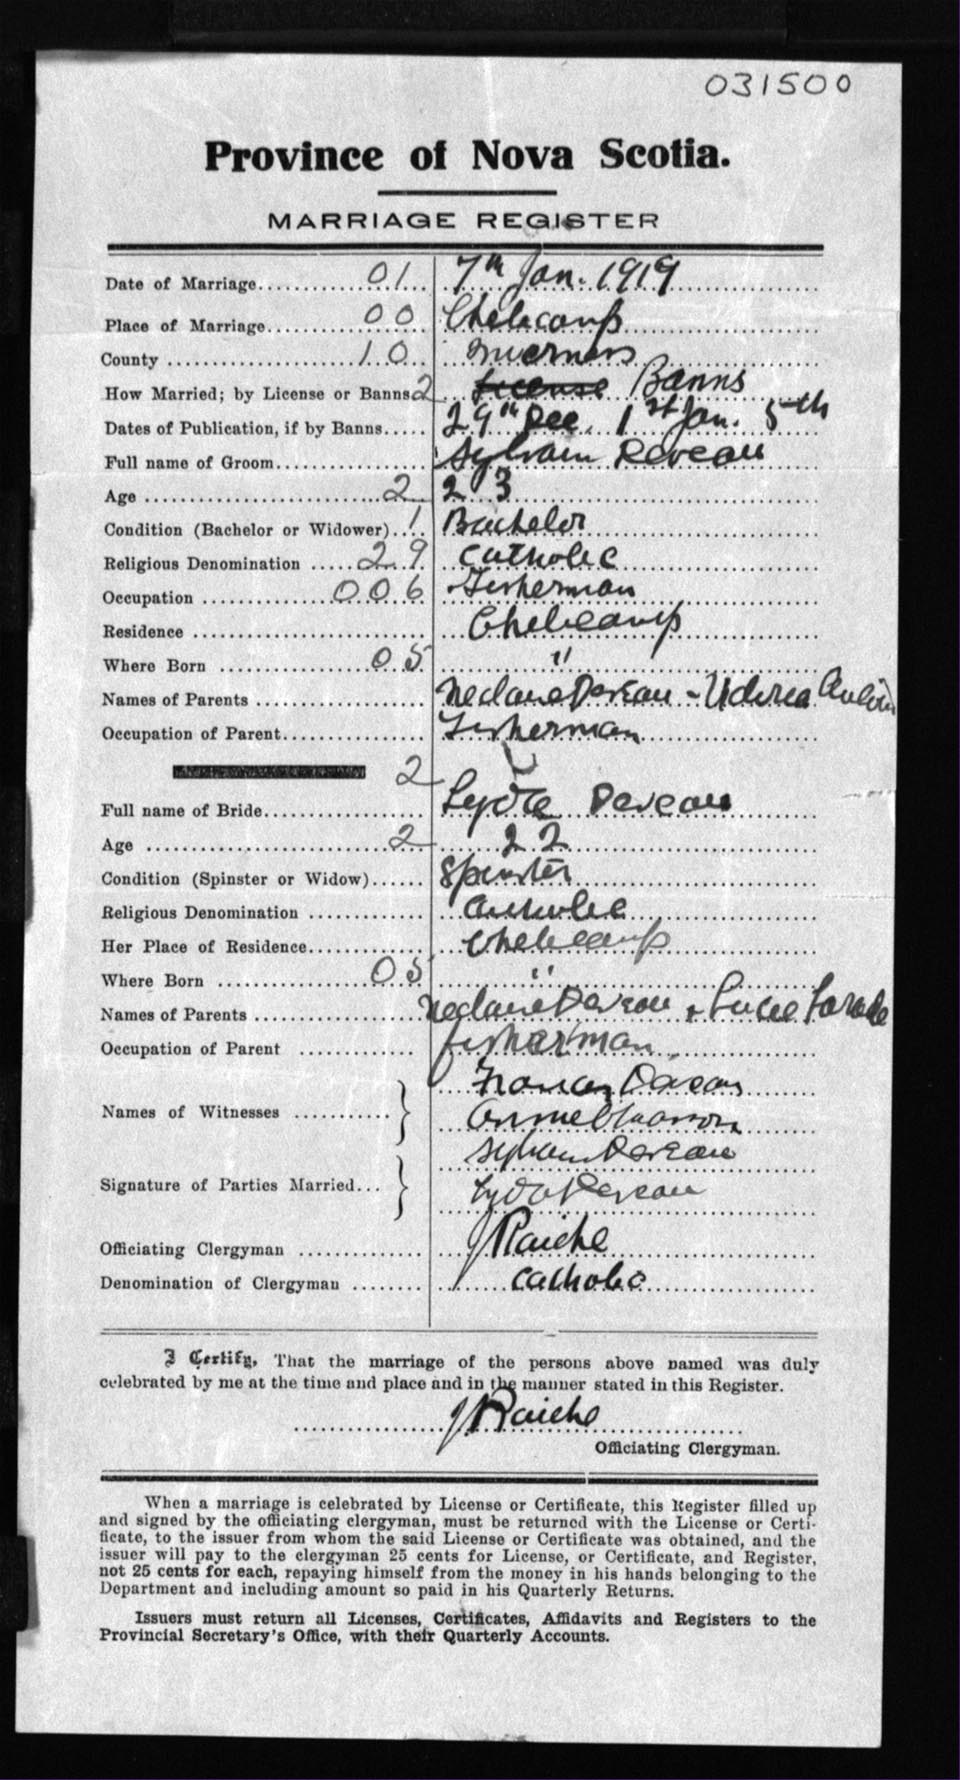 031500
Province of Nova Scotia.
MARRIAGE REGISTER
Date of Marriage 01 7th Jan. 1919
Place of Marriage 00 Chelicamp
County 10 Inverness
How Married; by License or Banns 2 License Banns
Dates of Publication, if by Banns 29th Dec. 1st Jan. 5th
Full name of Groom Sylvain Deveau
Age 2 23
Condition (Bachelor or Widower) 1 Bachelor
Religious Denomination 29 Catholic
Occupation 006 Fisherman
Residence Chelicamp
Where Born 05 "
Names of Parents Deveau -
Occupation of Parent Fisherman
2
Full name of Bride Lydie Deveau
Age 2 22
Condition (Spinster or Widow) Spinster
Religious Denomination Catholic
Her Place of Residence Chelicamp
Where Born 05 "
Names of Parents Deveau Lucie
Occupation of Parent fisherman
Names of Witnesses } Deveau
Annie
Signature of Parties Married... } Sylvain Deveau
Lydie Deveau
Officiating Clergyman J Raiche
Denomination of Clergyman Catholic
I Certify, That the marriage of the persons above named was duly
celebrated by me at the time and place and in the manner stated in this Register.
J Raiche
Officiating Clergyman.
When a marriage is celebrated by License or Certificate, this Register filled up
and signed by the officiating clergyman, must be returned with the License or Certi-
ficate, to the issuer from whom the said License or Certificate was obtained, and the
issuer will pay to the clergyman 25 cents for License, or Certificate, and Register,
not 25 cents for each, repaying himself from the money in his hands belonging to the
Department and including amount so paid in his Quarterly Returns.
Issuers must return all Licenses, Certificates, Affidavits and Registers to the
Provincial Secretary's Office, with their Quarterly Accounts.